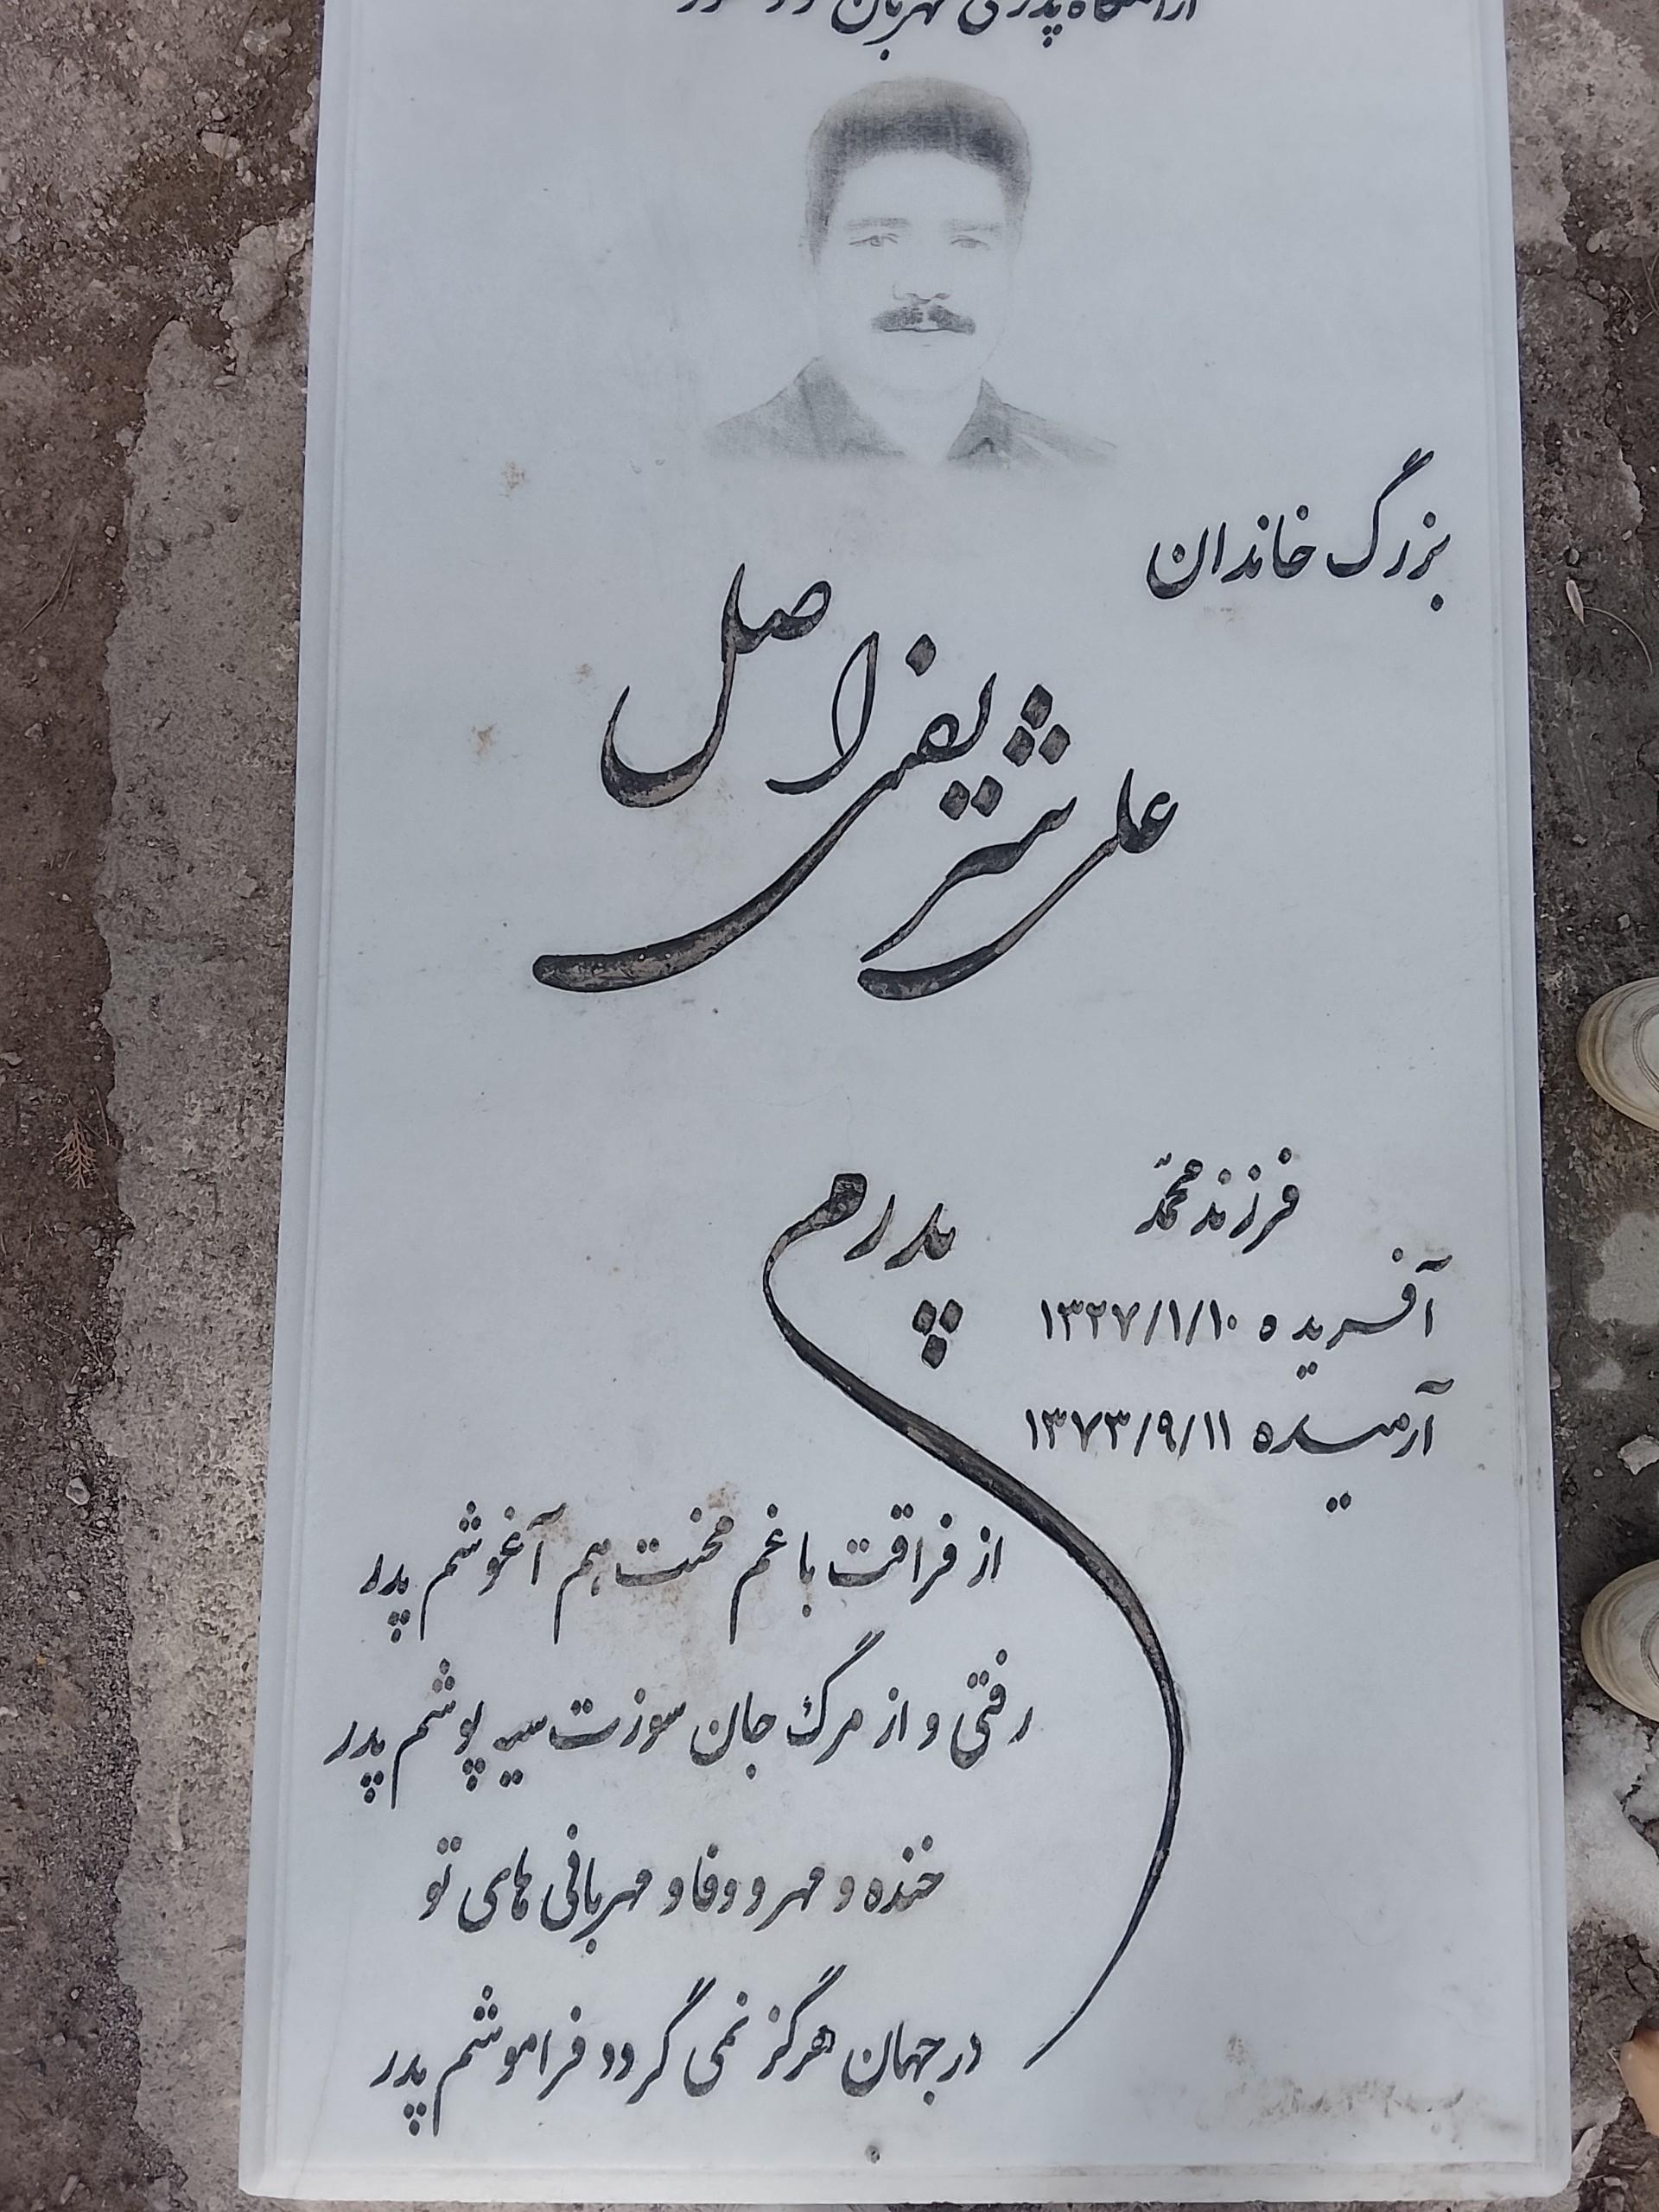 آرامگاه پدری مهربان و دلسوز
بزرگ خاندان
علی شریفی اصل
فرزند محمّد
آفریده ۱۳۲۷/۱/۱۰
آرمیده ۱۳۷۳/۹/۱۱
پدرم
از فراقت با غم محنت هم آغوشم پدر
رفتی و از مرگ جان سوزت سیه پوشم پدر
خنده و مهر و وفا و مهربانی های تو
در جهان هرگز نمی گردد فراموشم پدر